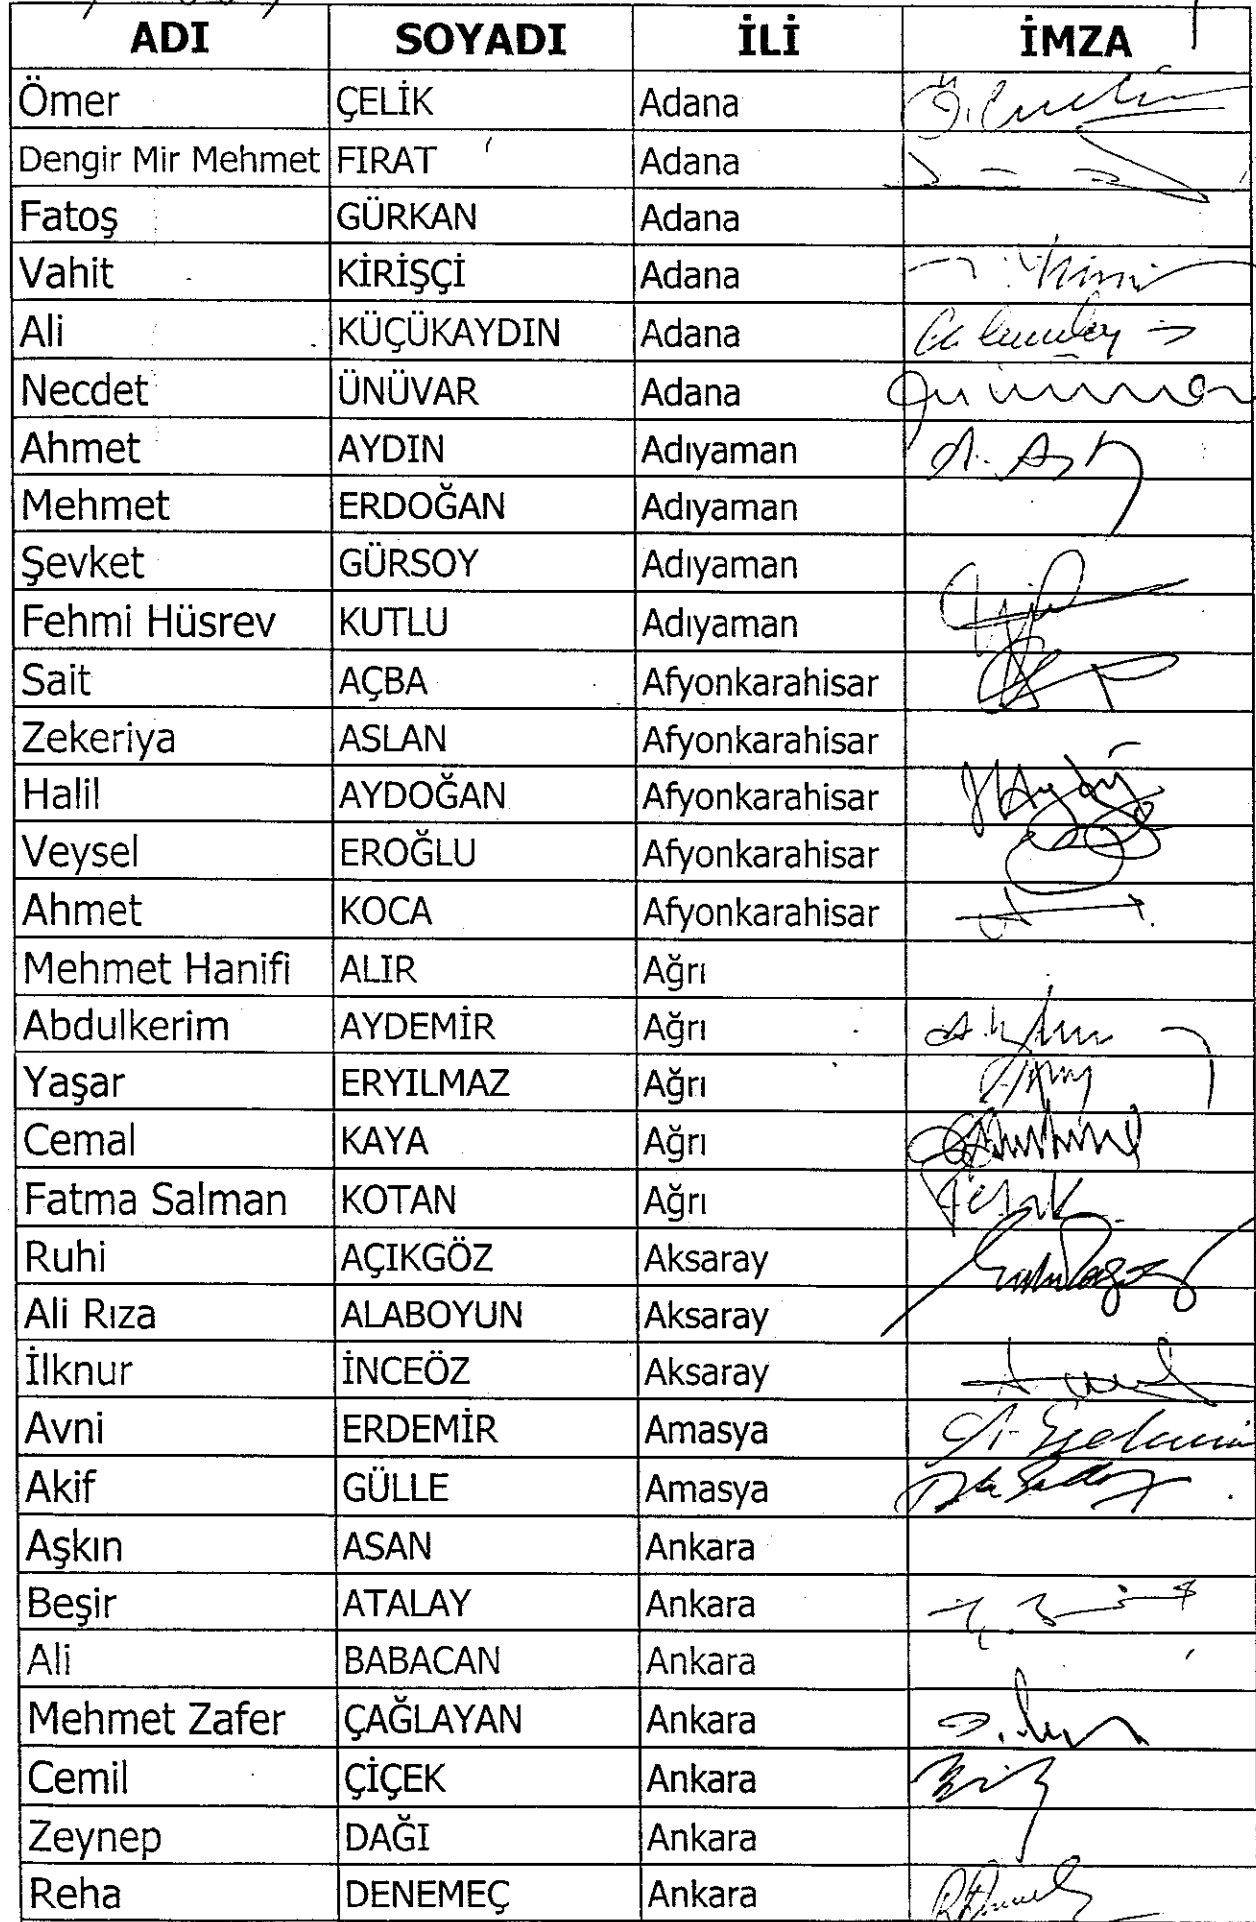 ADI SOYADI İLİ İMZA
Ömer ÇELİK Adana
Dengir Mir Mehmet FIRAT Adana
Fatoş GÜRKAN Adana
Vahit KİRİŞÇİ Adana
Ali KÜÇÜKAYDIN Adana
Necdet ÜNÜVAR Adana
Ahmet AYDIN Adıyaman
Mehmet ERDOĞAN Adıyaman
Şevket GÜRSOY Adıyaman
Fehmi Hüsrev KUTLU Adıyaman
Sait AÇBA Afyonkarahisar
Zekeriya ASLAN Afyonkarahisar
Halil AYDOĞAN Afyonkarahisar
Veysel EROĞLU Afyonkarahisar
Ahmet KOCA Afyonkarahisar
Mehmet Hanifi ALIR Ağrı
Abdulkerim AYDEMİR Ağrı
Yaşar ERYILMAZ Ağrı
Cemal KAYA Ağrı
Fatma Salman KOTAN Ağrı
Ruhi AÇIKGÖZ Aksaray
Ali Rıza ALABOYUN Aksaray
İlknur İNCEÖZ Aksaray
Avni ERDEMİR Amasya
Akif GÜLLE Amasya
Aşkın ASAN Ankara
Beşir ATALAY Ankara
Ali BABACAN Ankara
Mehmet Zafer ÇAĞLAYAN Ankara
Cemil ÇİÇEK Ankara
Zeynep DAĞI Ankara
Reha DENEMEÇ Ankara